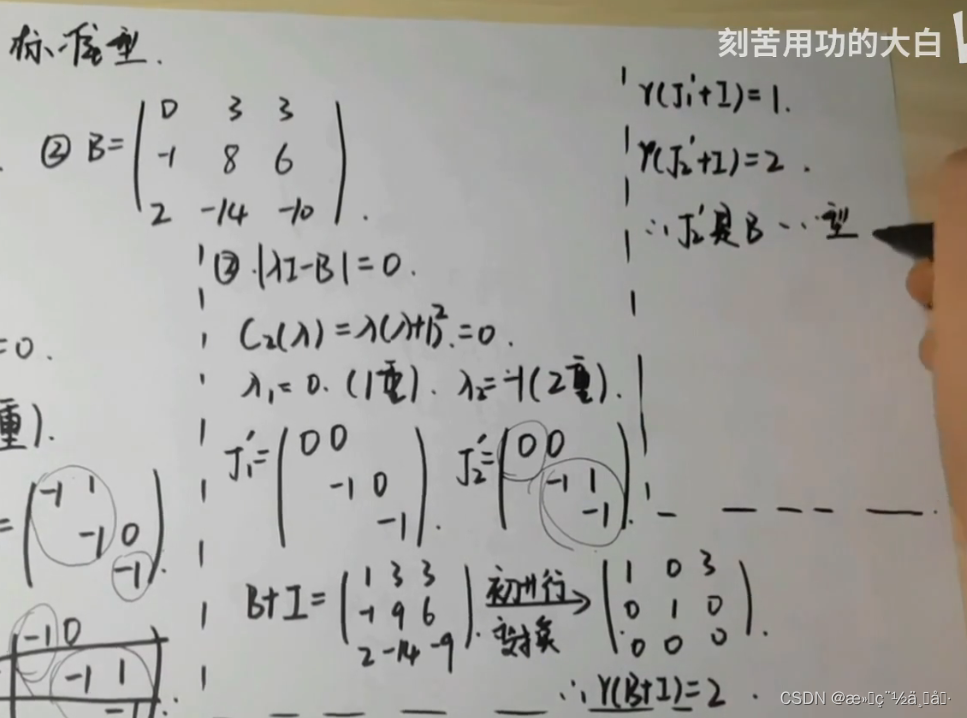 标准型.
刻苦用功的大白
② B= ( 0 3 3
-1 8 6
2 -14 -10 ).
=0.
重).
= ( -1 1
-1 0
-1 ).
-1 0
-1 1
-1
② |λI-B|=0.
C₂(λ)=λ(λ+1)²=0.
λ₁=0. (1重). λ₂=-1(2重).
J₁'= ( 0 0
-1 0
-1 ).
J₂'= ( 0 0
-1 1
-1 ).
B+I= ( 1 3 3
-1 9 6
2 -14 -9 ). 初等行变换→ ( 1 0 3
0 1 0
0 0 0 ).
∴ r(B+I)=2.
r(J₁'+I)=1.
r(J₂'+I)=2.
∴ J₂'是B…型